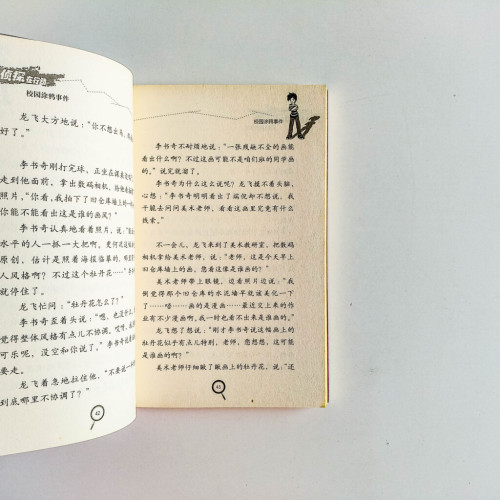 侦探在行动
校园涂鸦事件
龙飞大方地说："你不想出
好了。"
李书奇刚打完球，正坐在
走到他面前，拿出数码相机，给他
照片，"你看，我拍下了旧仓库墙上的
你能不能看出这是谁的画风？"
李书奇认真地看着照片，说：
水平的人一抓一大把啊。更何况这
原创，估计是照着海报临摹的，哪
人风格啊？不过这个牡丹花……"
就停住了。
龙飞忙问："牡丹花怎么了？"
李书奇歪着头说："嗯，也没什么
觉得整体风格有点儿不协调。哎呀，
可乐呢，没空和你说了。"李书奇说
要走。
龙飞着急地拉住他，"不要说一
到底哪里不协调了？"
42
校园涂鸦事件
李书奇不耐烦地说："一张残缺不全的画能
看出什么啊？不过这画可能不是咱们班的同学画
的。"说完就溜了。
李书奇为什么这么说呢？龙飞摸不着头脑，
心想："李书奇明明看出了端倪却不想说，我
干脆去问问美术老师，看看这画里究竟有什么
线索。"
不一会儿，龙飞来到了美术教研室，把数码
相机拿给美术老师，说："老师，这是今天早上
旧仓库墙上的画，您看这像是谁画的？"
美术老师带上眼镜，边看照片边说："我
倒觉得那个旧仓库的水泥墙早就该美化一下
了……唔……画的是漫画……最近交上来的作
业有不少漫画啊，我一时也看不出来是谁画的。"
龙飞想了想说："刚才李书奇说这幅画上的
牡丹花似乎有点儿特别，老师，您想想，这可能
是谁画的呢？"
美术老师仔细瞅了瞅画上的牡丹花，说："还
43